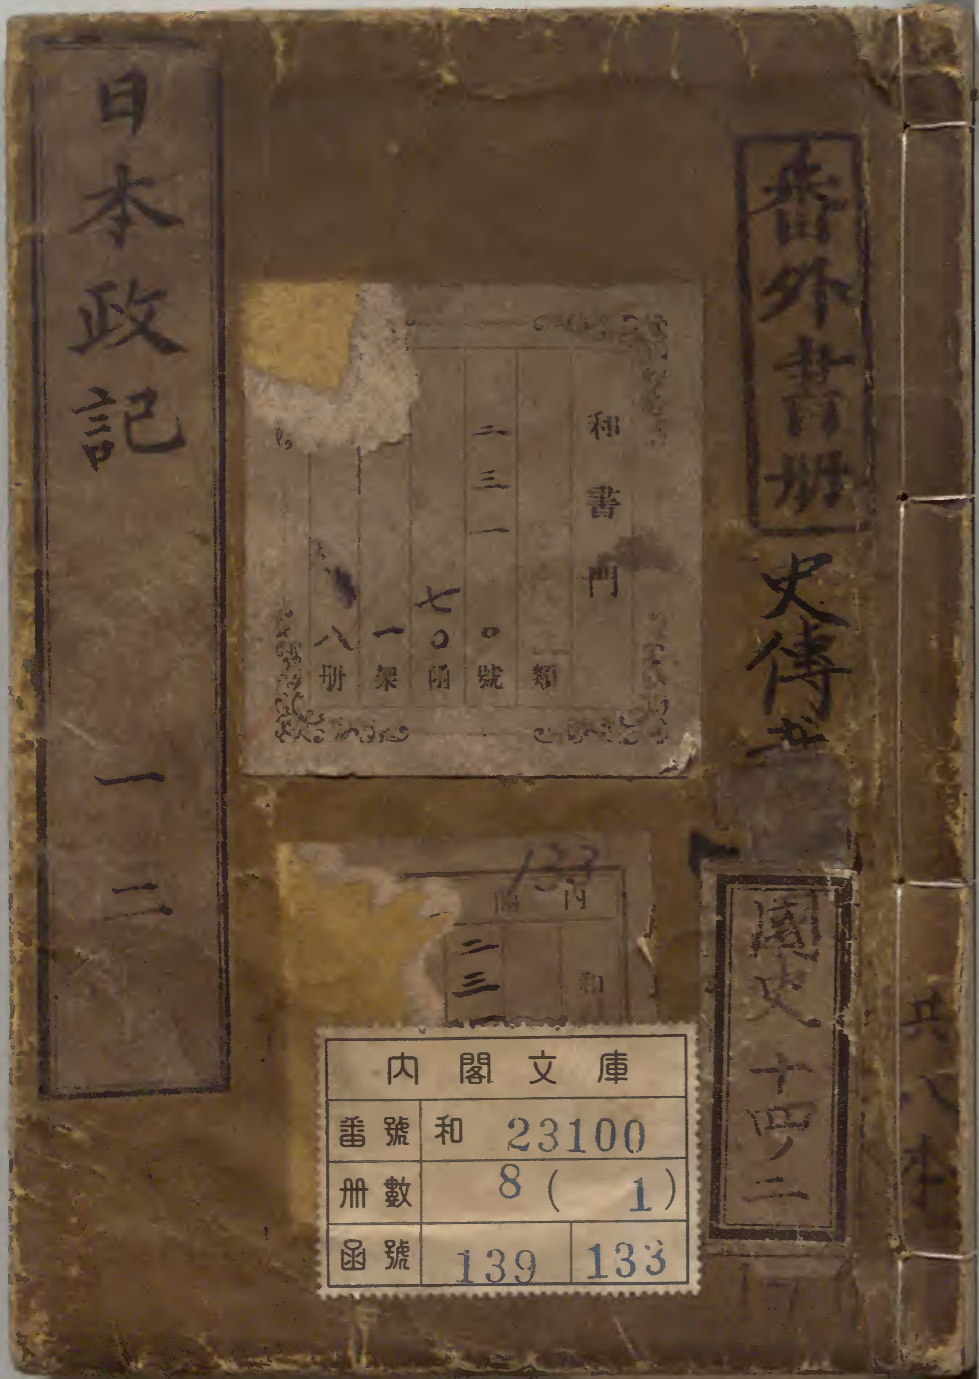 番外書册
史傳
國史 十四ノ二
共八本
和書門
類
二三一〇號
七〇函
一架
八册
133
内閣
和
二三一
内閣文庫
番號 和 23100
册數 8 ( 1 )
函號 139 133
日本政記 一二